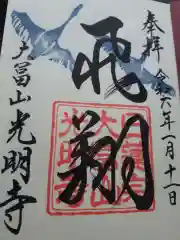 奉拝 令和六年一月十一日
飛翔
戸冨山光明寺